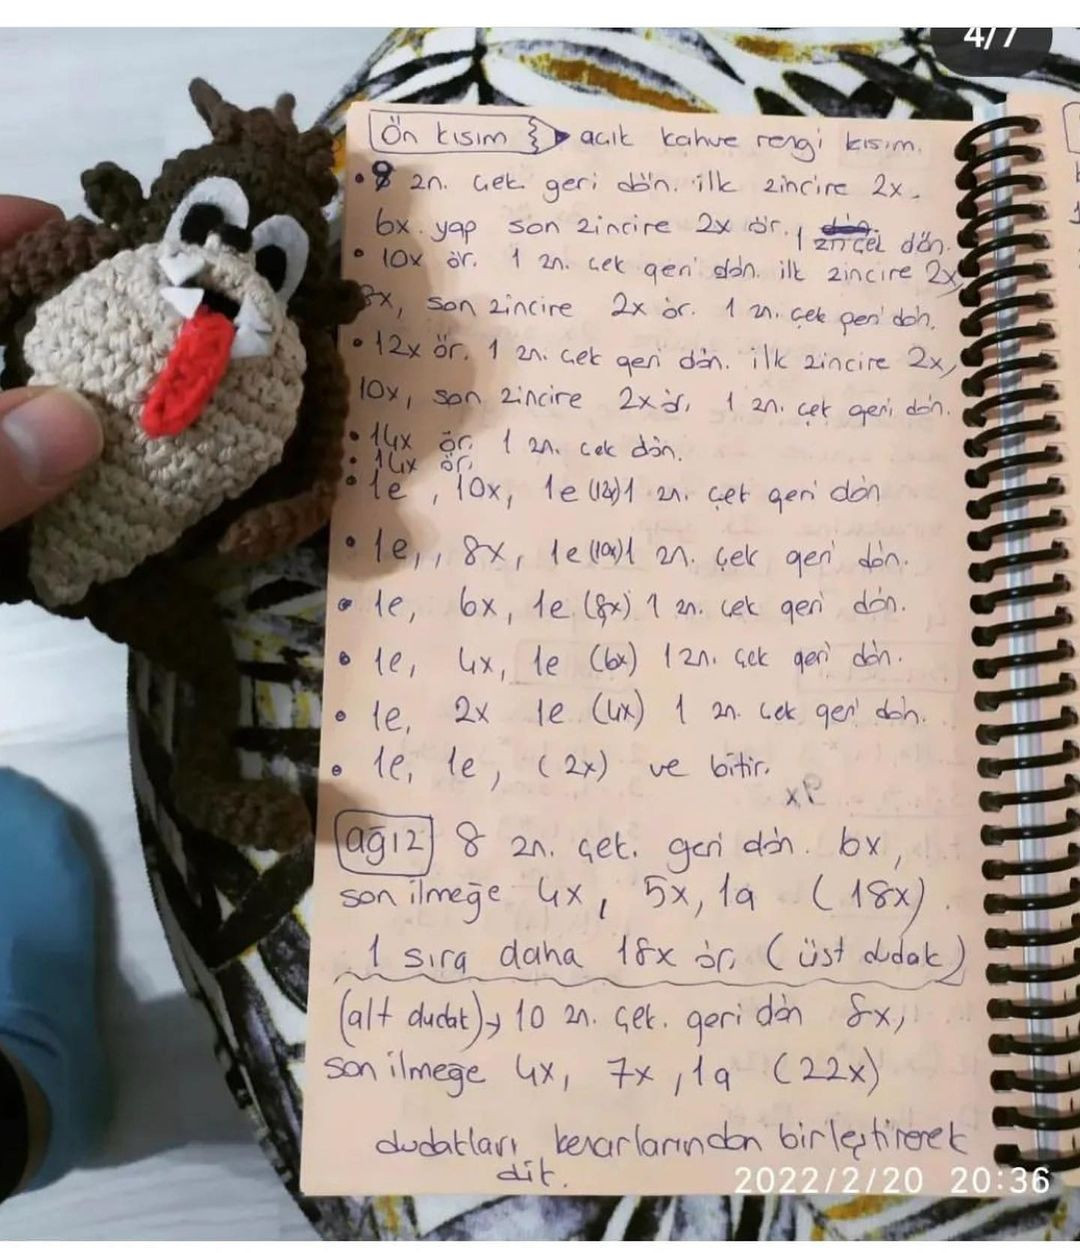 4/7
Ön kısım açık kahve rengi kısım.
• 8 zn. çek geri dön. ilk zincire 2x.
6x. yap son zincire 2x ör. 1 zn çek dön.
• 10x ör. 1 zn. çek geri dön. ilk zincire 2x,
8x, son zincire 2x ör. 1 zn. çek geri dön.
• 12x ör. 1 zn. çek geri dön. ilk zincire 2x,
10x, son zincire 2x ör, 1 zn. çek geri, dön.
• 14x ör, 1 zn. çek dön.
• 14x ör,
• 1e, 10x, 1e (12x) 1 zn. çek geri dön
• 1e,, 8x, 1e (10x) 1 zn. çek geri dön.
• 1e, 6x, 1e (8x) 1 zn. çek geri dön.
• 1e, 4x, 1e (6x) 1 zn. çek geri dön.
• 1e, 2x 1e (4x) 1 zn. çek geri dön.
• 1e, 1e, (2x) ve bitir.
ağız 8 zn. çek. geri dön. 6x,
son ilmeğe 4x, 5x, 1a (18x).
1 sıra daha 18x ör, (üst dudak)
(alt dudak)→ 10 zn. çek. geri dön 8x,
son ilmeğe 4x, 7x, 1a (22x)
dudakları kenarlarından birleştirerek
dik.
2022/2/20 20:36